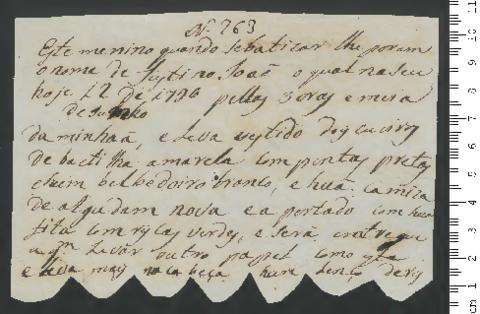 N. 763
Este menino quando se batizar lhe poram
o nome de Justino João o qual nasceu
hoje 12 de 1796 pellas 3 oras e meia
de Junho
da minhaã, e leva vestido dois cueiros
de baetilha amarela com pintas pretas
e hum belbedoiro branco, e huã camiza
de algudam nova e a pertado com huã
fita com ryscas verdes, e será entregue
a qm levar outro papel como este
e leva mais na cabeça hum lenço de